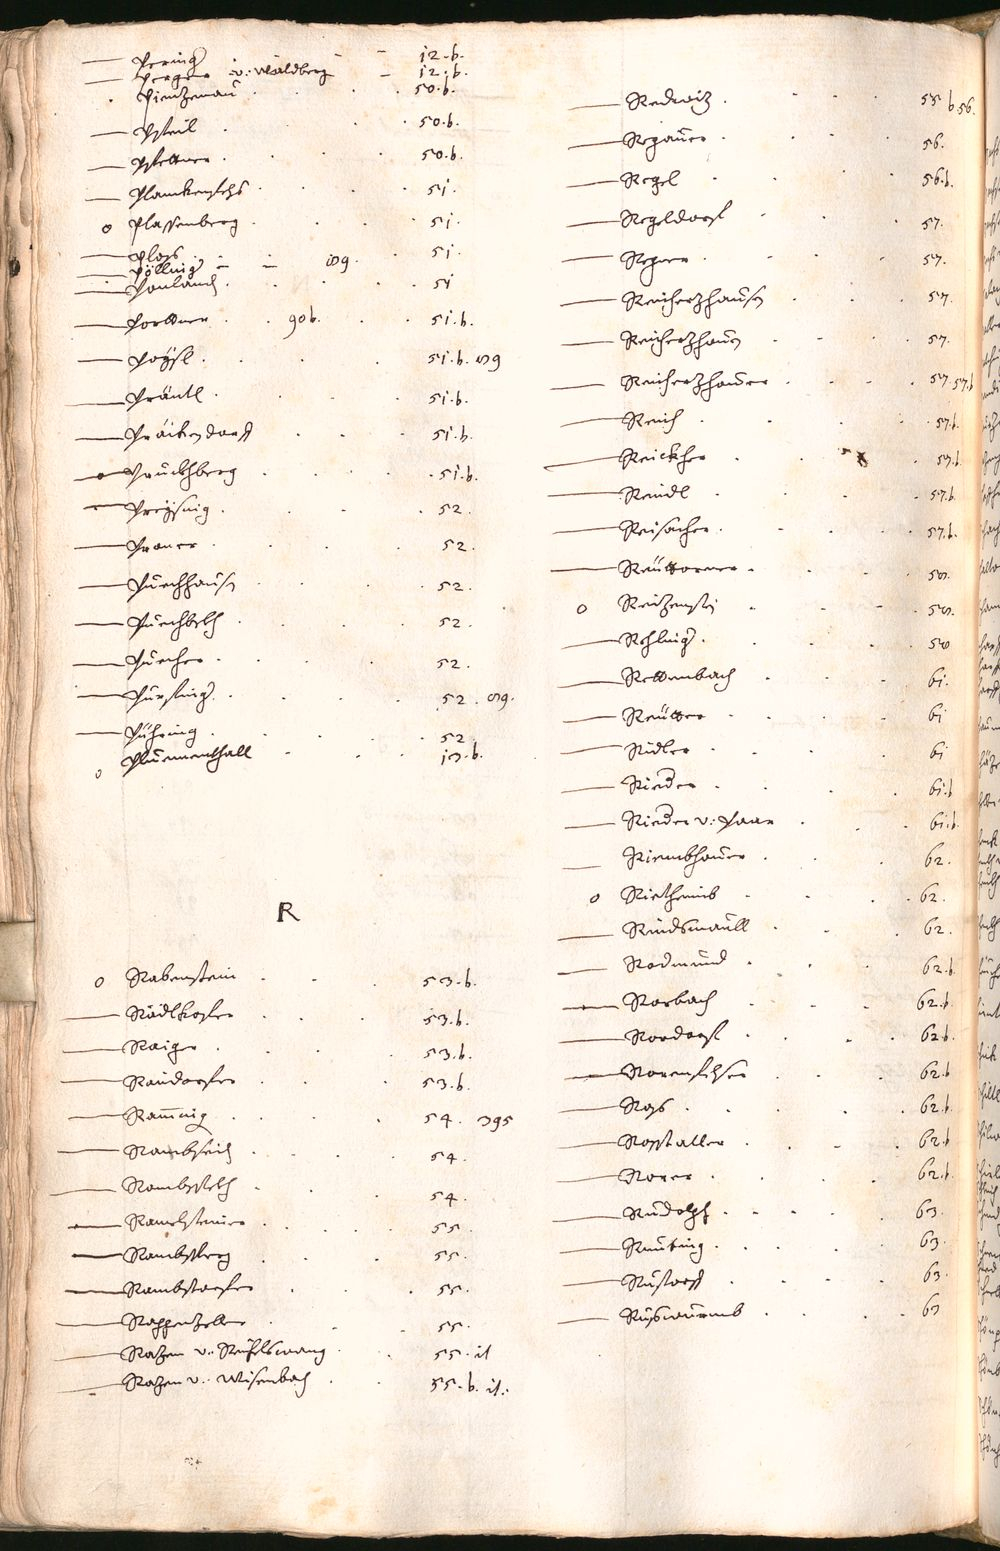 Pering 12.b.
Perger v: Waldberg 12.b.
Pientzenau 50.b.
Pfeil 50.b.
Pfettner 50.b.
Planckenfels 51.
Plassenberg 51.
Ploss 51.
Pöllnig 189.
Ponland 51
Portner 90b. 51.b.
Poyßl 51.b. 89
Präntl 51.b.
Präitendorff 51.b.
Pruckhberg 51.b.
Preysing 52.
Praner 52.
Puechhausen 52.
Puechbeckh 52.
Puecher 52.
Pürsting 52. 89.
Pühring 52
Pluementhall 18.b.
R
Rabenstein 53.b.
Rädlkofer 53.b.
Raiger 53.b.
Raindorfer 53.b.
Ramung 54. 395
Rambseid 54.
Rambseckh 54.
Ramelsteiner 55.
Rambsberg 55.
Rambstorfer 55.
Rappenzeller 55.
Razen v: Reifelswang 55. it
Razen v: Wisenbach 55.b. it.
Redwiz 55 b 56.
Regauer 56.
Regel 56.b.
Regeldorf 57.
Regen 57.
Reichertzhausen 57.
Reichertzhaim 57.
Reichertzhamer 57. 57.b
Reich 57.b.
Reickher 57.b.
Reindl 57.b.
Reisacher 57.b.
Reüttorner 58.
Reitzenstein 58.
Rehling 58
Rettenbach 61.
Reütter 61
Ridler 61
Rieder 61.b
Rieder v: Paar 61.b.
Riembhamer 62.
Rietheimb 62.
Rindsmaull 62.
Rodmund 62.b.
Rorbach 62.b.
Rordorf 62b.
Rorenfelser 62.b
Ross 62.b
Rosstaller 62.b
Rorer 62.b.
Rudolph 63.
Reuting 63.
Rustorff 63.
Ruswurmb 63